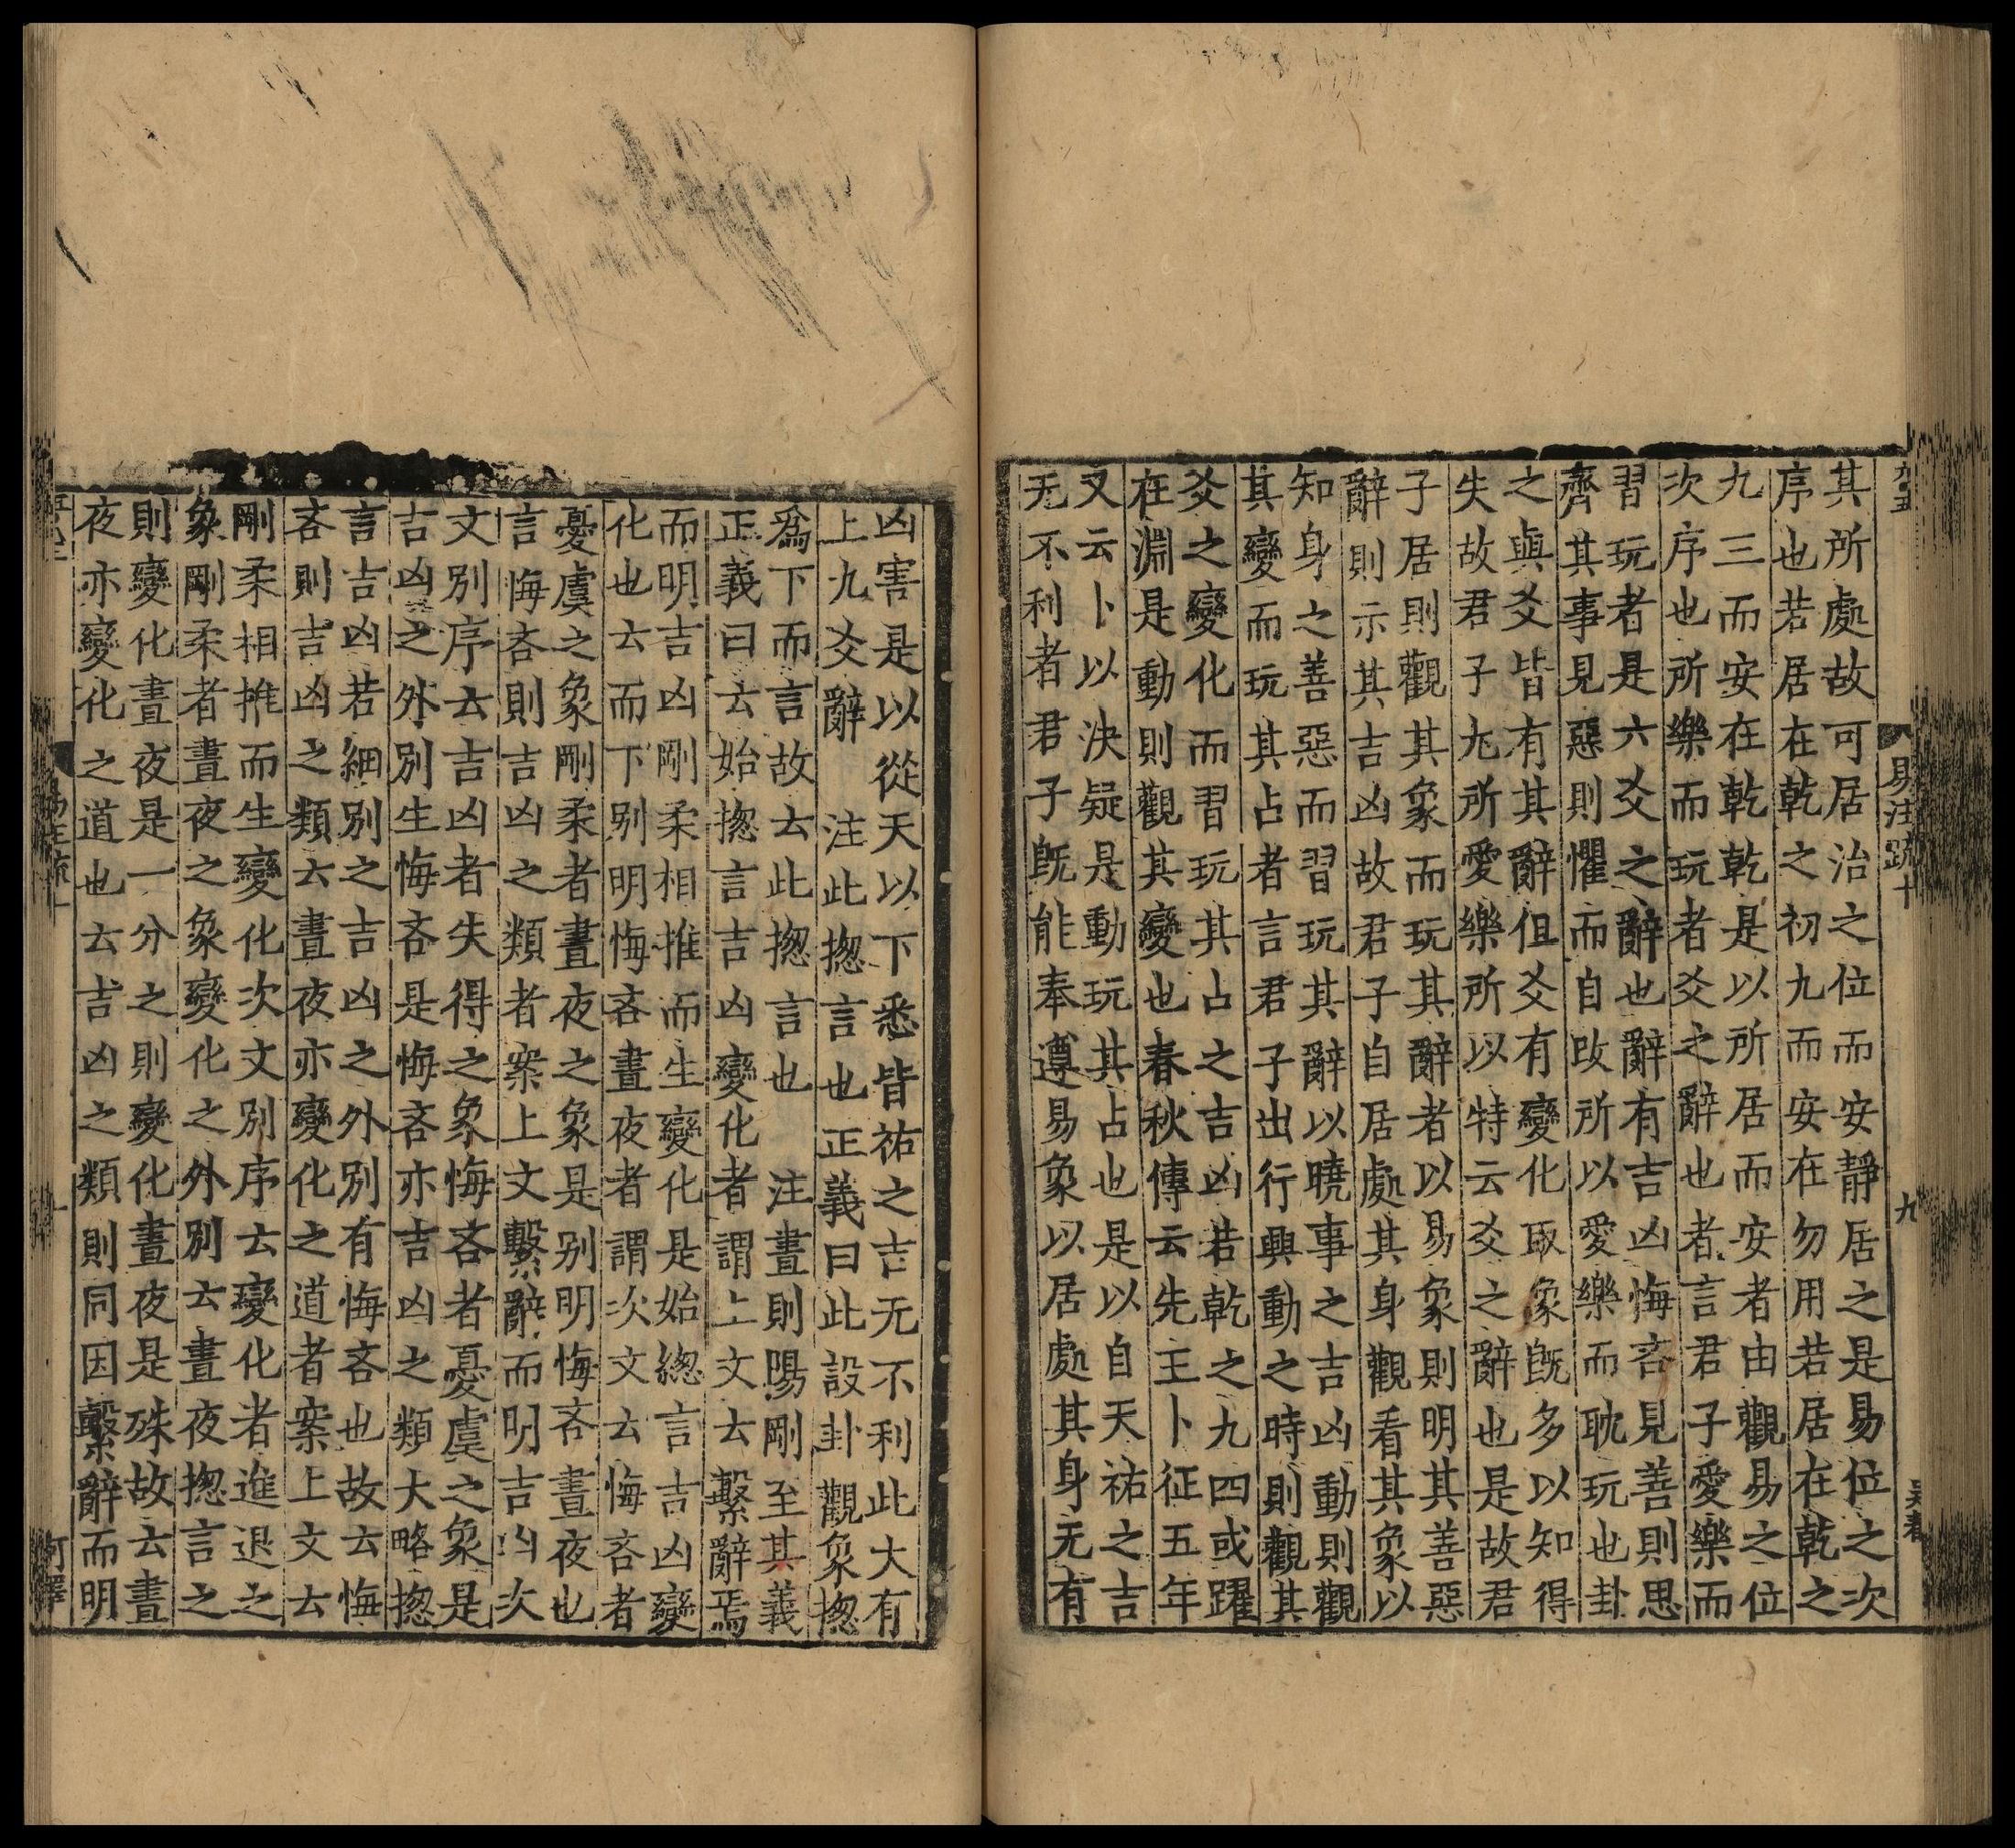 九五 易注疏十 九 吳春
其所處故可居治之位而安靜居之是易位之次
序也若居在乾之初九而安在勿用若居在乾之
九三而安在乾乾是以所居而安者由觀易之位
次序也所樂而玩者爻之辭也者言君子愛樂而
習玩者是六爻之辭也辭有吉凶悔吝見善則思
齊其事見惡則懼而自改所以愛樂而耽玩也卦
之與爻皆有其辭但爻有變化取象旣多以知得
失故君子尢所愛樂所以特云爻之辭也是故君
子居則觀其象而玩其辭者以易象則明其善惡
辭則示其吉凶故君子自居處其身觀看其象以
知身之善惡而習玩其辭以曉事之吉凶動則觀
其變而玩其占者言君子出行興動之時則觀其
爻之變化而習玩其占之吉凶若乾之九四或躍
在淵是動則觀其變也春秋傳云先王卜征五年
又云卜以決疑是動玩其占也是以自天祐之吉
无不利者君子旣能奉遵易象以居處其身无有
凶害是以從天以下悉皆祐之吉无不利此大有
上九爻辭 注此揔言也正義曰此設卦觀象揔
爲下而言故云此揔言也 注晝則陽剛至其義
正義曰云始揔言吉凶變化者謂上文云繫辭焉
而明吉凶剛柔相推而生變化是始緫言吉凶變
化也云而下別明悔吝晝夜者謂次文云悔吝者
憂虞之象剛柔者晝夜之象是別明悔吝晝夜也
言悔吝則吉凶之類者案上文繫辭而明吉凶次
文別序云吉凶者失得之象悔吝者憂虞之象是
吉凶之外別生悔吝是悔吝亦吉凶之類大略揔
言吉凶若細別之吉凶之外別有悔吝也故云悔
吝則吉凶之類云晝夜亦變化之道者案上文云
剛柔相推而生變化次文別序云變化者進退之
象剛柔者晝夜之象變化之外別云晝夜揔言之
則變化晝夜是一分之則變化晝夜是殊故云晝
夜亦變化之道也云吉凶之類則同因繫辭而明